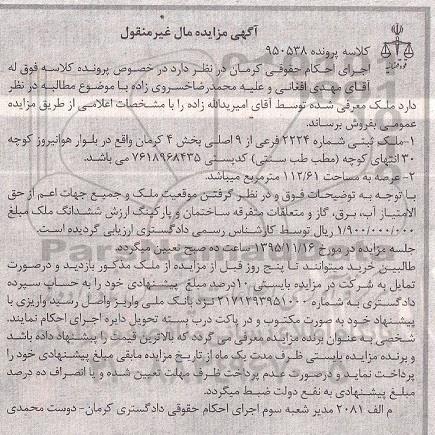 آگهی مزایده مال غیرمنقول
کلاسه پرونده ۹۵۰۵۳۸
اجرای احکام حقوقی کرمان در نظر دارد در خصوص پرونده کلاسه فوق له
آقای مهدی افغانی و علیه محمدرضاخسروی زاده با موضوع مطالبه در نظر
دارد ملک معرفی شده توسط آقای امیریدالله زاده را با مشخصات اعلامی از طریق مزایده
عمومی بفروش برساند.
۱-ملک ثبتی شماره ۲۲۲۴ فرعی از ۹ اصلی بخش ۴ کرمان واقع در بلوار هوانیروز کوچه
۳۰ انتهای کوچه (مطب طب سنتی) کدپستی ۷۶۱۸۹۶۸۴۳۵ می باشد.
۲- عرصه به مساحت ۱۱۲/۶۱ مترمربع میباشد.
با توجه به توضیحات فوق و در نظر گرفتن موقعیت ملک و جمیع جهات اعم از حق
الامتیاز آب، برق، گاز و متعلقات متفرقه ساختمان و پارکینگ ارزش ششدانگ ملک مبلغ
۱/۹۰۰/۰۰۰/۰۰۰ ریال توسط کارشناس رسمی دادگستری ارزیابی گردیده است.
جلسه مزایده در مورخ ۱۳۹۵/۱۱/۱۶ ساعت ده صبح تعیین میگردد.
طالبین خرید میتوانند تا پنج روز قبل از مزایده از ملک مذکور بازدید و درصورت
تمایل به شرکت در مزایده بایستی ۱۰درصد مبلغ پیشنهادی خود را به حساب سپرده
دادگستری به شماره ۲۱۷۱۲۹۳۹۵۱۰۰۰ نزد بانک ملی واریز واصل رسید واریزی با
پیشنهاد خود به صورت مکتوب و در پاکت درب بسته تحویل دایره اجرای احکام نمایند.
شخصی به عنوان برنده مزایده معرفی می گردد که بالاترین قیمت را پیشنهاد داده باشد
و برنده مزایده بایستی ظرف مدت یک ماه از تاریخ مزایده مابقی مبلغ پیشنهادی خود را
پرداخت نماید و درصورت عدم پرداخت ظرف مهلت تعیین شده و یا انصراف ده درصد
مبلغ پیشنهادی به نفع دولت ضبط میگردد.
م الف ۲۰۸۱ مدیر شعبه سوم اجرای احکام حقوقی دادگستری کرمان- دوست محمدی